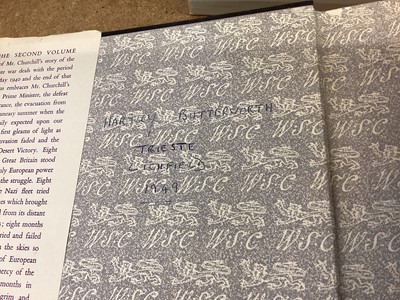 THE SECOND VOLUME
of Mr. Churchill's story of the
war deals with the period
May 1940 and the end of that
us embraces Mr. Churchill's
Prime Minister, the defeat
rance, the evacuation from
uneasy summer when the
ily expected upon our
first gleams of light as
nvasion faded and the
Desert Victory. Eight
Great Britain stood
only European power
the struggle. Eight
Nazi fleet tried
es which brought
from its distant
; eight months
ried and failed
the skies so
of European
mercy of the
months in
grim and
BUTTERWORTH
TRIESTE
LICHFIELD
W.S.C.